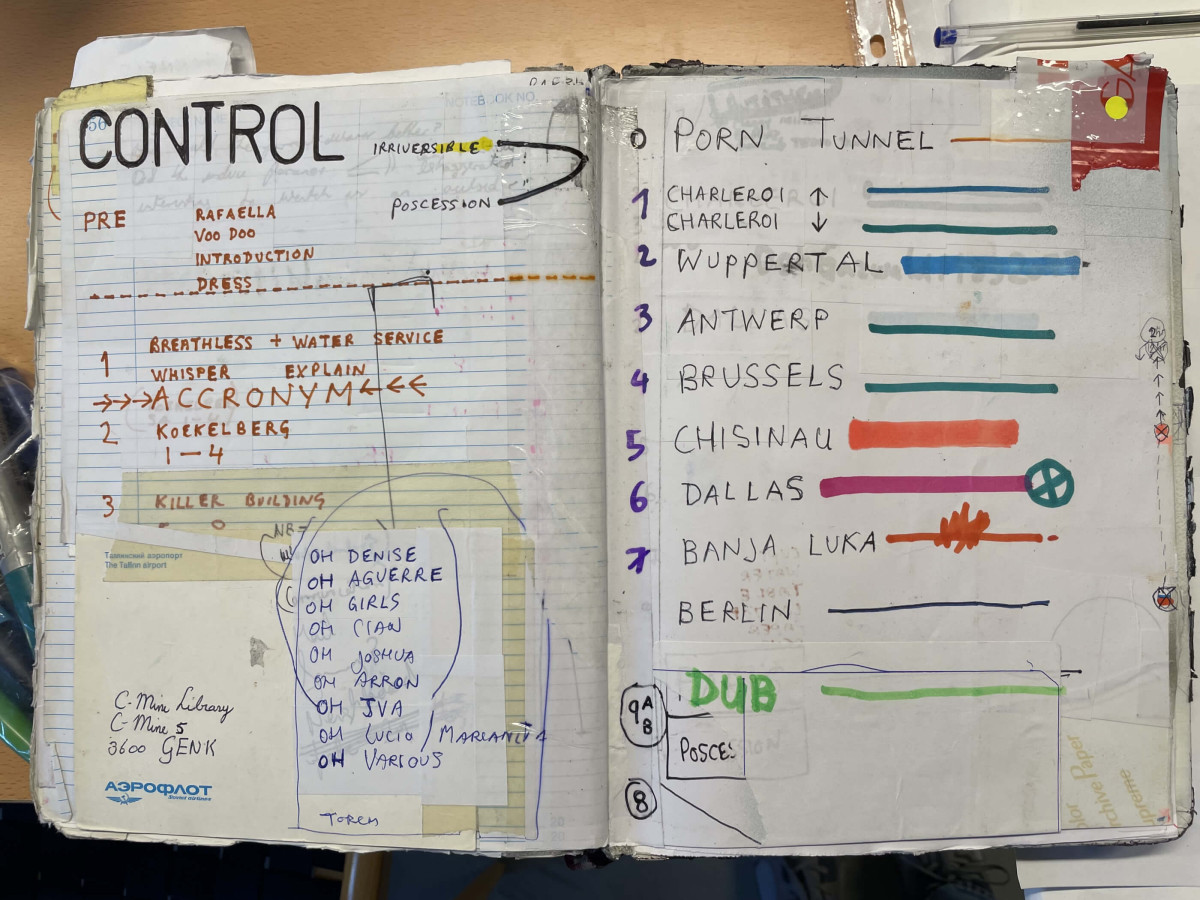 NOTEBOOK NO
CONTROL
IRRIVERSIBLE
POSCESSION
PRE
RAFAELLA
VOO DOO
INTRODUCTION
DRESS
1
BREATHLESS + WATER SERVICE
WHISPER EXPLAIN
→→→ACCRONYM←←←
2 KOEKELBERG
1 — 4
3 KILLER BUILDING
NB=
Таллинский аэропорт
The Tallinn airport
OH DENISE
OH AGUERRE
OH GIRLS
OH CIAN
OH JOSHUA
OH ARRON
OH JVA
OH LUCIO / MARGANITA
OH VARIOUS
TORCH
C-Mine Library
C-Mine 5
3600 GENK
АЭРОФЛОТ
Soviet airlines
0 PORN TUNNEL
1 CHARLEROI ↑
CHARLEROI ↓
2 WUPPERTAL
3 ANTWERP
4 BRUSSELS
5 CHISINAU
6 DALLAS
7 BANJA LUKA
BERLIN
DUB
9 A
8
POSCES
8